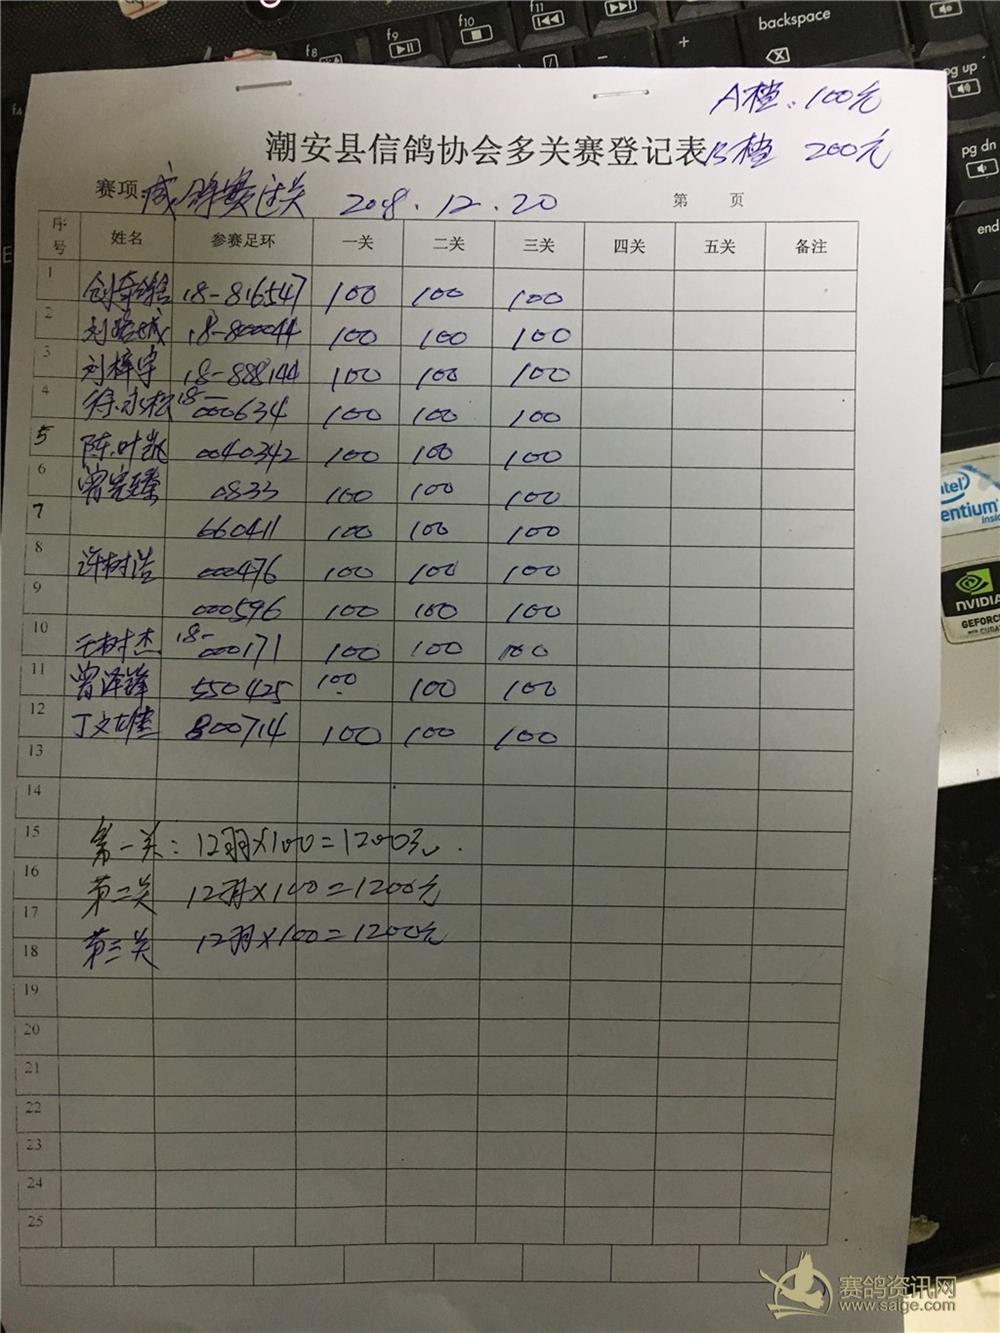 backspace
f9
f10
f11
f8
pg up
pg dn
end
A档：100元
潮安县信鸽协会多关赛登记表 B档 200元
赛项： 成鸽赛过关 2018.12.20 第 页
序号 姓名 参赛足环 一关 二关 三关 四关 五关 备注
1 创奇鸽舍 18-816547 100 100 100
2 18-800044 100 100 100
3 刘梓宇 18-888144 100 100 100
4 徐永松 18-000634 100 100 100
5 陈叶凯 0040342 100 100 100
6 0833 100 100 100
7 660411 100 100 100
8 许树浩 000476 100 100 100
9 000596 100 100 100
10 树杰 18-000171 100 100 100
11 曾泽锋 550425 100 100 100
12 丁文雄 800714 100 100 100
13
14
15 第一关：12羽×100=1200元.
16 第二关 12羽×100=1200元
17
18 第三关 12羽×100=1200元
19
20
21
22
23
24
25
intel
pentium
inside
NVIDIA
GEFORCE
赛鸽资讯网
www.saige.com